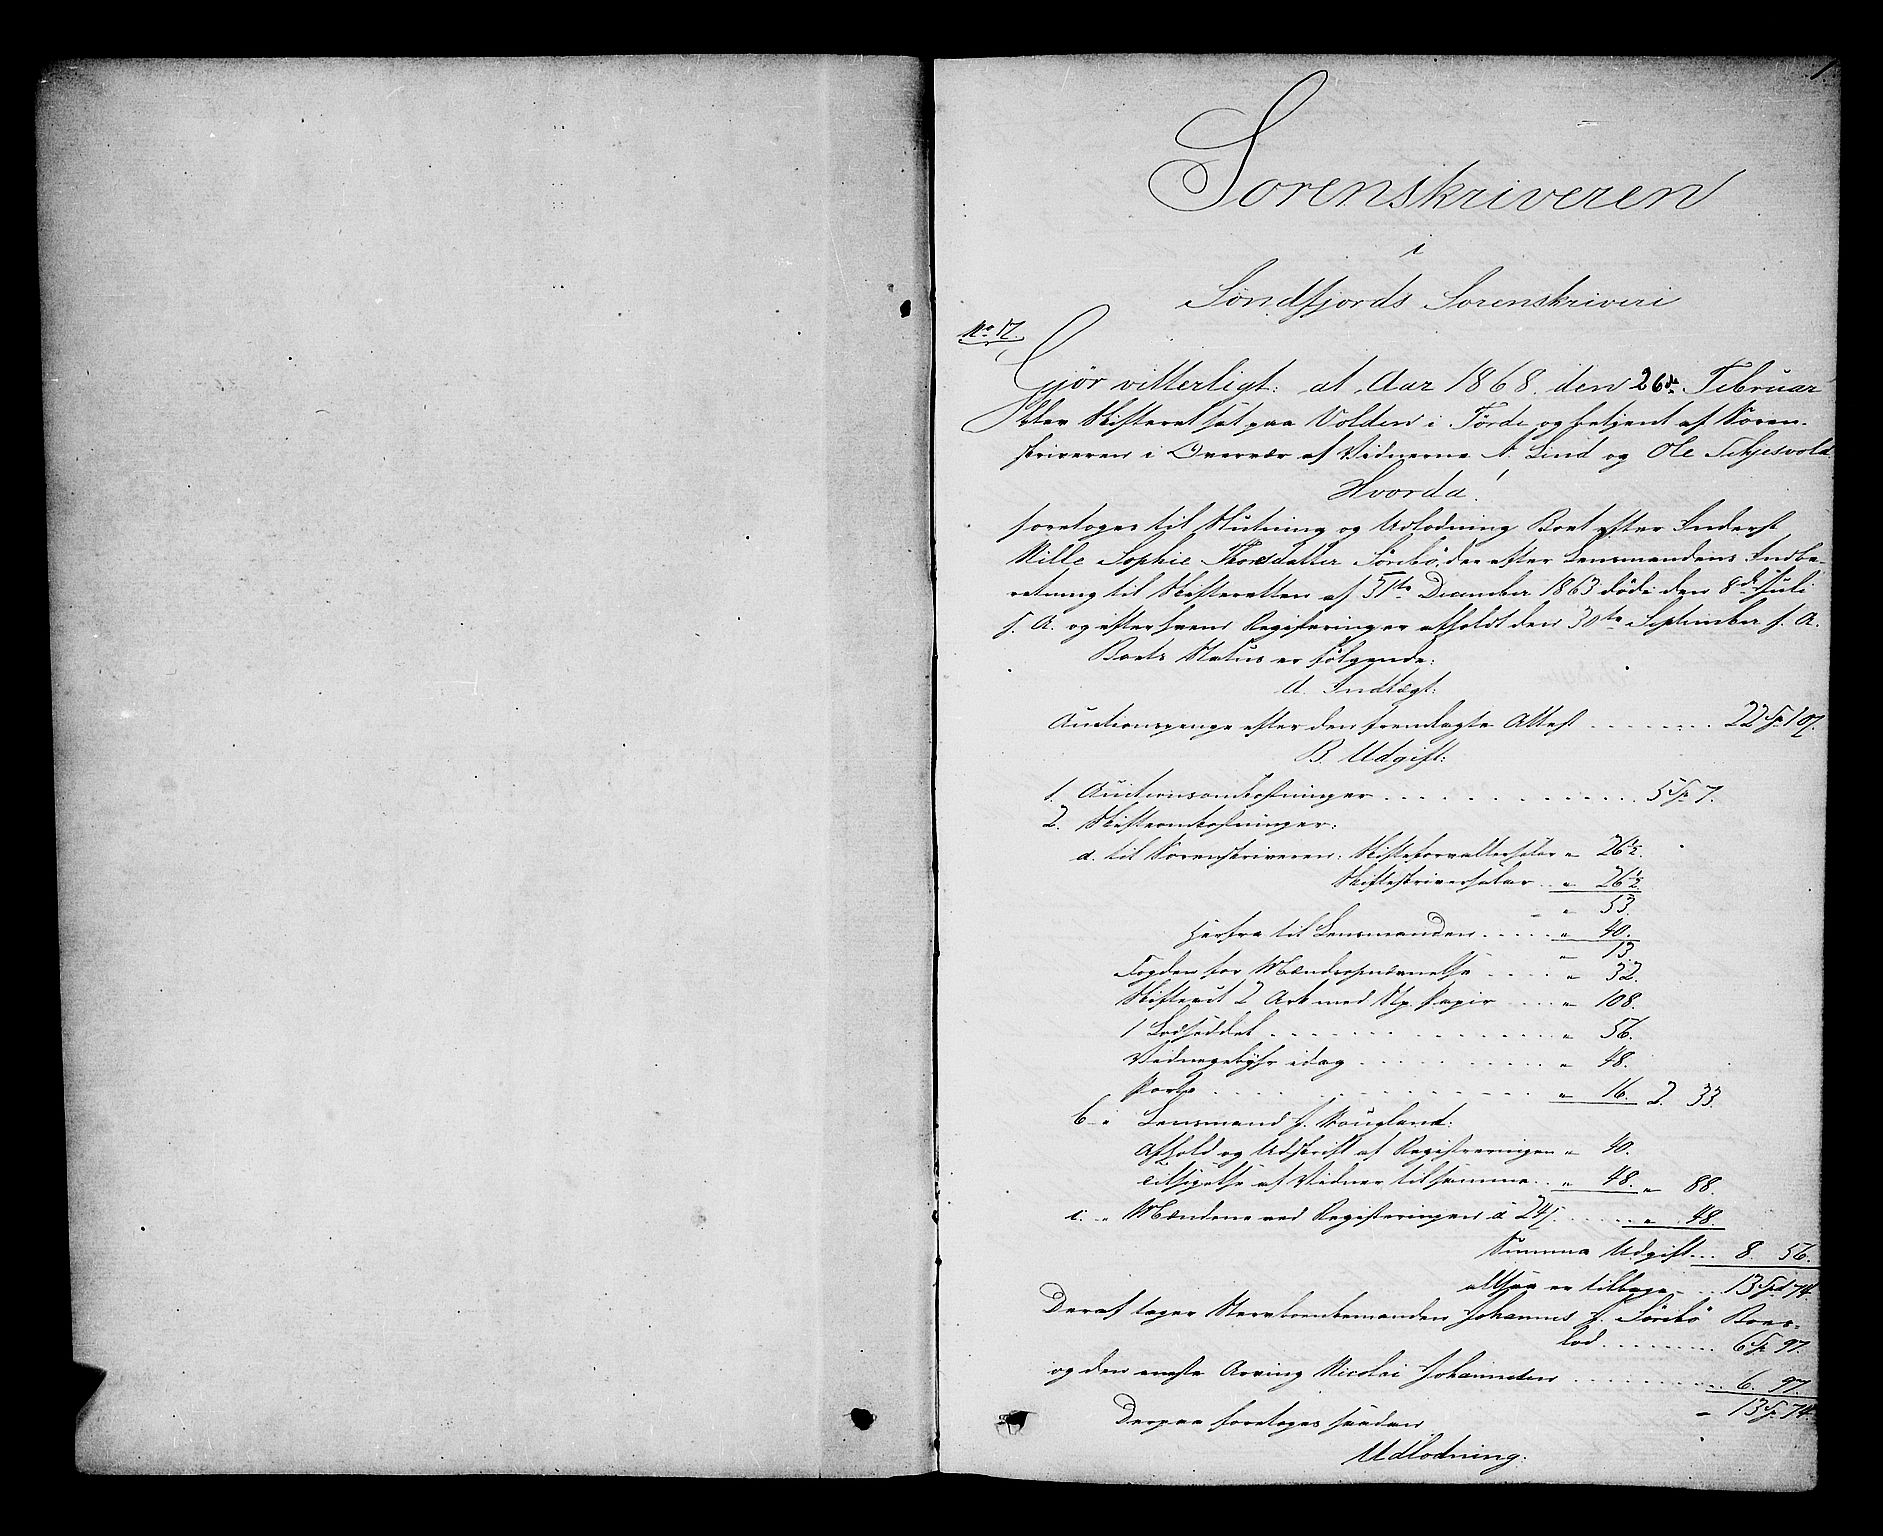 1
Sorenskriveren
i
Søndfjords Sorenskriveri
No 17.
Gjör vitterligt: at Aar 1868 den 26de Februar
blev Skifteret sat paa Volden i Førde og betjent af Soren-
skriveren i Overvær af Vidnerne N. Lind og Ole Tefjesvold
Hvorda!
foretoges til Slutning og Udlodning Boet efter Inderst
Mille Sophie Thorsdatter Sørebö, der efter Lensmandens Indbe-
retning til Skifteretten af 31te December 1863 döde den 8de Juli
s. A. og efter hvem Registrering er afholdt den 30te September s. A.
Boets Status er følgende:
A. Indtægt:
Auctionspenge efter den fremlagte Attest 22 Sp 107.
B. Udgift:
1. Auctionsomkostninger 5 Sp 7.
2. Skifteomkostninger:
a. til Sorenskriveren: Skifteforvaltersalar " 26½.
Skifteskriversalar " 26½
" 53.
Herfra til Lensmanden " 40.
" 13.
Fogden for Mændsopnævnelse " 32.
Skifteact 2 Ark med St. Papir " 108.
1 Lodseddel " 56.
Vidnegebyhr idag " 48.
Porto " 16. 2. 33.
b. " Lensmand J. Sougland:
Afhold og Udskrift af Registreringen " 40.
Tilsigelse af Vidner til samme " 48. " 88.
c. " Mændene ved Registreringen à 24 s. " 48.
Summa Udgift 8. 56.
altsaa er tilbage 13 Spd 74.
Deraf tager Stervboenkemanden Johannes J. Sørebö Boes-
lod 6 Sp 97.
og den eneste Arving Nicolai Johannesen 6. 97.
" 13 Sp 74.
Derpaa foretoges saadan
Udlodning: